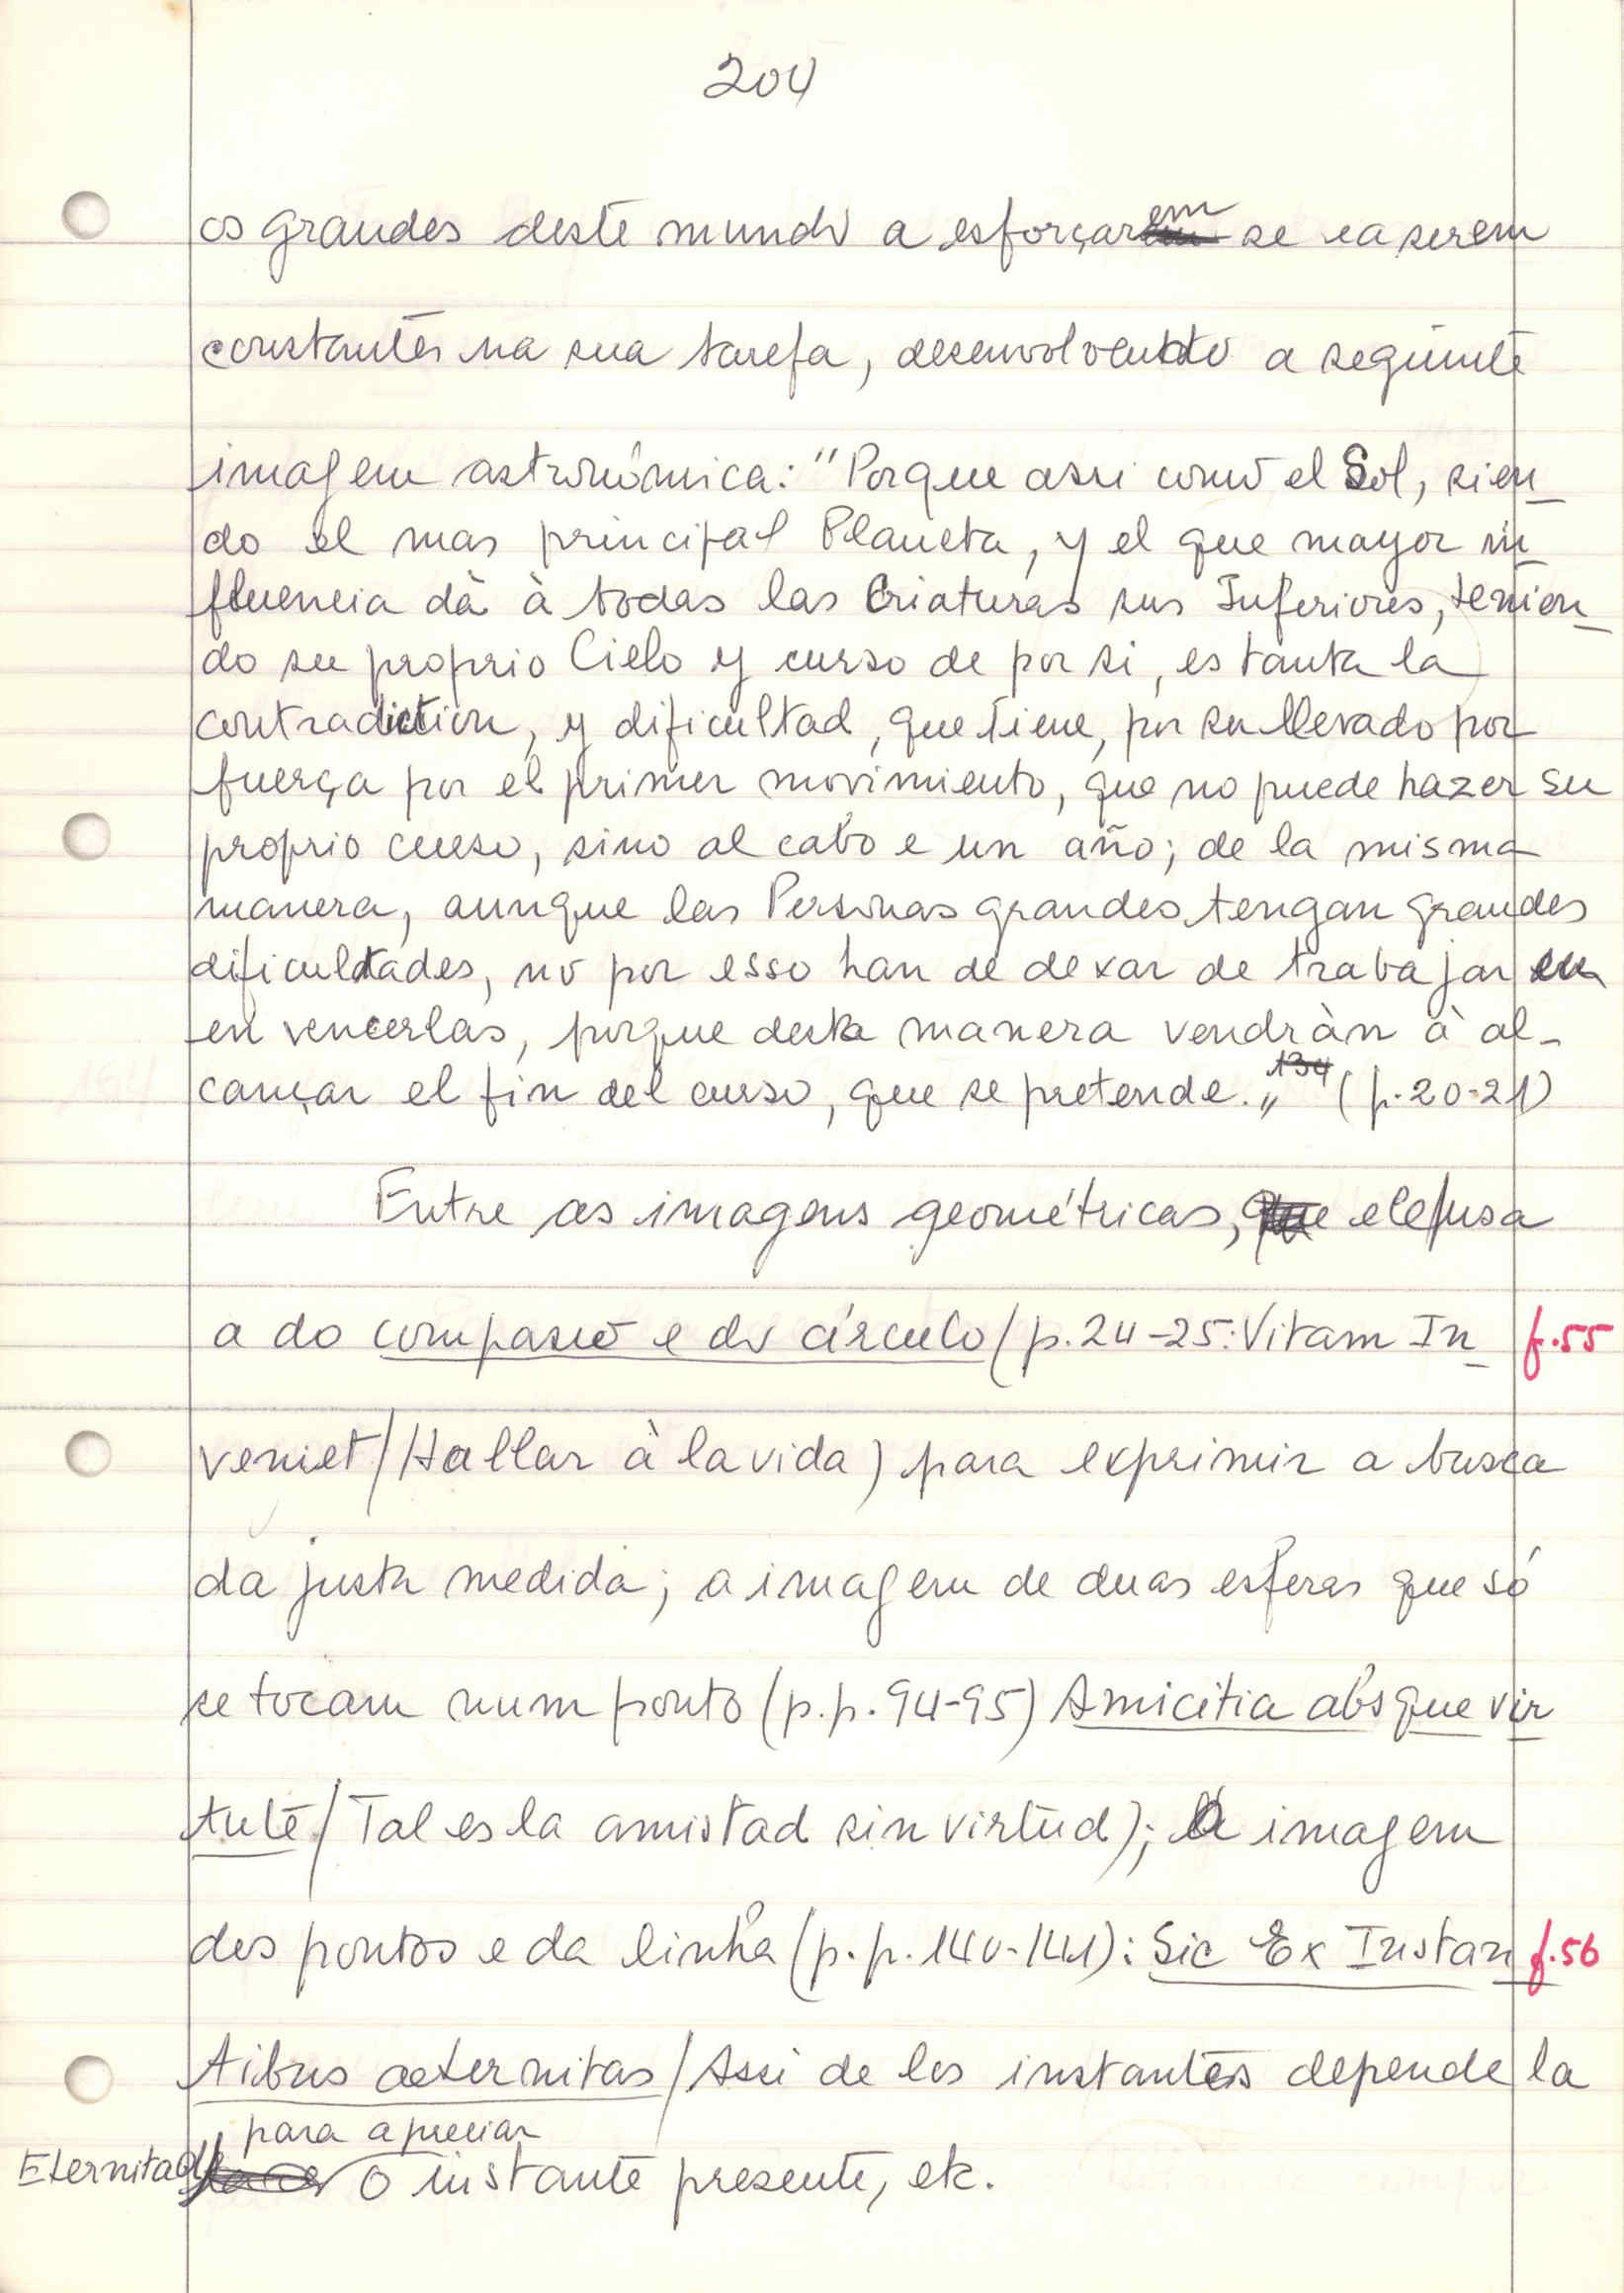 204
os grandes deste mundo a esforçarem se e a serem
constantes na sua tarefa, desenvolvendo a seguinte
imagem astronómica: "Porque assi como el Sol, sien_
do el mas principal Planeta, y el que mayor in_
fluencia dà à todas las Criaturas sus Inferiores, tenien_
do su proprio Cielo y curso de por si, es tanta la
contradiction, y dificultad, que tiene, por ser llevado por
fuerça por el primer movimiento, que no puede hazer su
proprio curso, sino al cabo e un año; de la misma
manera, aunque las Personas grandes tengan grandes
dificultades, no por esso han de dexar de trabajar en
en vencerlas, porque desta manera vendràn à al-
cançar el fin del curso, que se pretende." 134 (p.20-21)
Entre as imagens geométricas, que ele usa
a do compasso e do círculo (p.24-25: Vitam In_ f.55
veniet / Hallar à la vida) para exprimir a busca
da justa medida; a imagem de duas esferas que só
se tocam num ponto (p.p. 94-95) Amicitia absque vir
tute / Tal es la amistad sin virtud); a imagem
dos pontos e da linha (p.p. 140-141): Sic Ex Instan_ f.56
tibus aeternitas / Assi de los instantes depende la
para apreciar
Eternitad) o instante presente, etc.